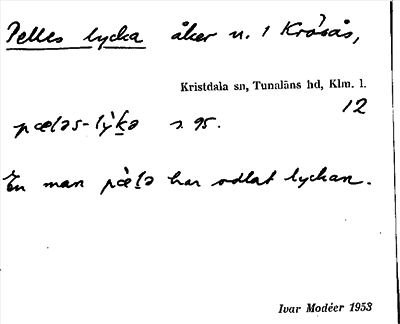 Pelles lycka åker n. 1 Krösås,
Kristdala sn, Tunaläns hd, Klm. l.
12
pæləs-lỳkə s. 95.
En man pælə har odlat lyckan.
Ivar Modéer 1953